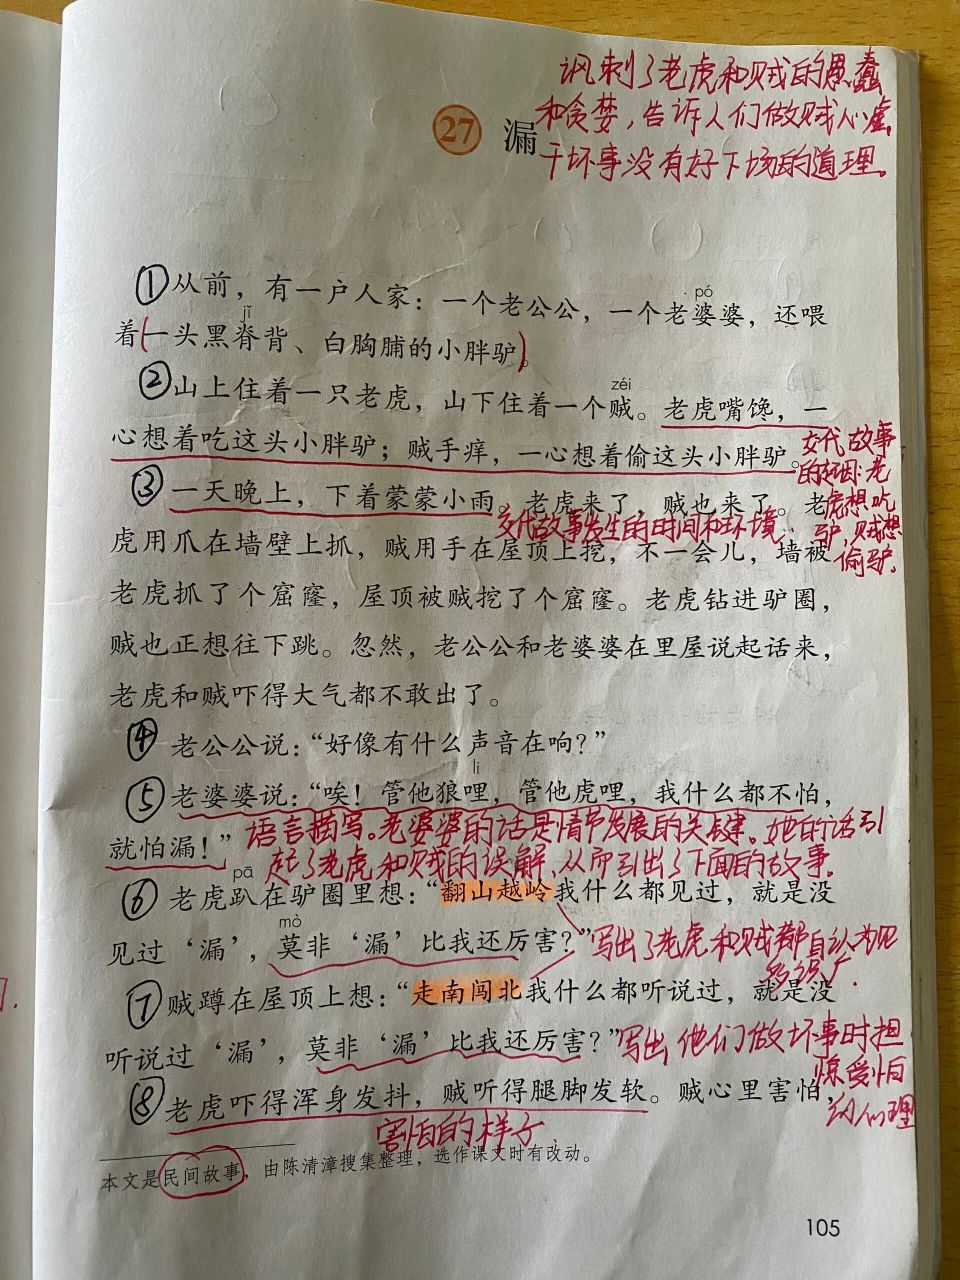 讽刺了老虎和贼的愚蠢
和贪婪，告诉人们做贼心虚，
干坏事没有好下场的道理。
27 漏
pó
①从前，有一户人家：一个老公公，一个老婆婆，还喂
jǐ
着(一头黑脊背、白胸脯的小胖驴)。
zéi
②山上住着一只老虎，山下住着一个贼。老虎嘴馋，一
心想着吃这头小胖驴；贼手痒，一心想着偷这头小胖驴。
交代故事
的起因：老
虎想吃
驴，贼想
偷驴。
③一天晚上，下着蒙蒙小雨。老虎来了，贼也来了。老
交代故事发生的时间和环境
虎用爪在墙壁上抓，贼用手在屋顶上挖，不一会儿，墙被
老虎抓了个窟窿，屋顶被贼挖了个窟窿。老虎钻进驴圈，
贼也正想往下跳。忽然，老公公和老婆婆在里屋说起话来，
老虎和贼吓得大气都不敢出了。
④老公公说：“好像有什么声音在响？”
li
⑤老婆婆说：“唉！管他狼哩，管他虎哩，我什么都不怕，
就怕漏！”
语言描写。老婆婆的话是情节发展的关键。她的话引
起了老虎和贼的误解，从而引出了下面的故事。
pā
⑥老虎趴在驴圈里想：“翻山越岭我什么都见过，就是没
mò
见过‘漏’，莫非‘漏’比我还厉害？”
写出了老虎和贼都自认为见
多识广.
⑦贼蹲在屋顶上想：“走南闯北我什么都听说过，就是没
听说过‘漏’，莫非‘漏’比我还厉害？”
写出他们做坏事时担
惊受怕
的心理
⑧老虎吓得浑身发抖，贼听得腿脚发软。贼心里害怕，
害怕的样子
本文是民间故事，由陈清漳搜集整理，选作课文时有改动。
105